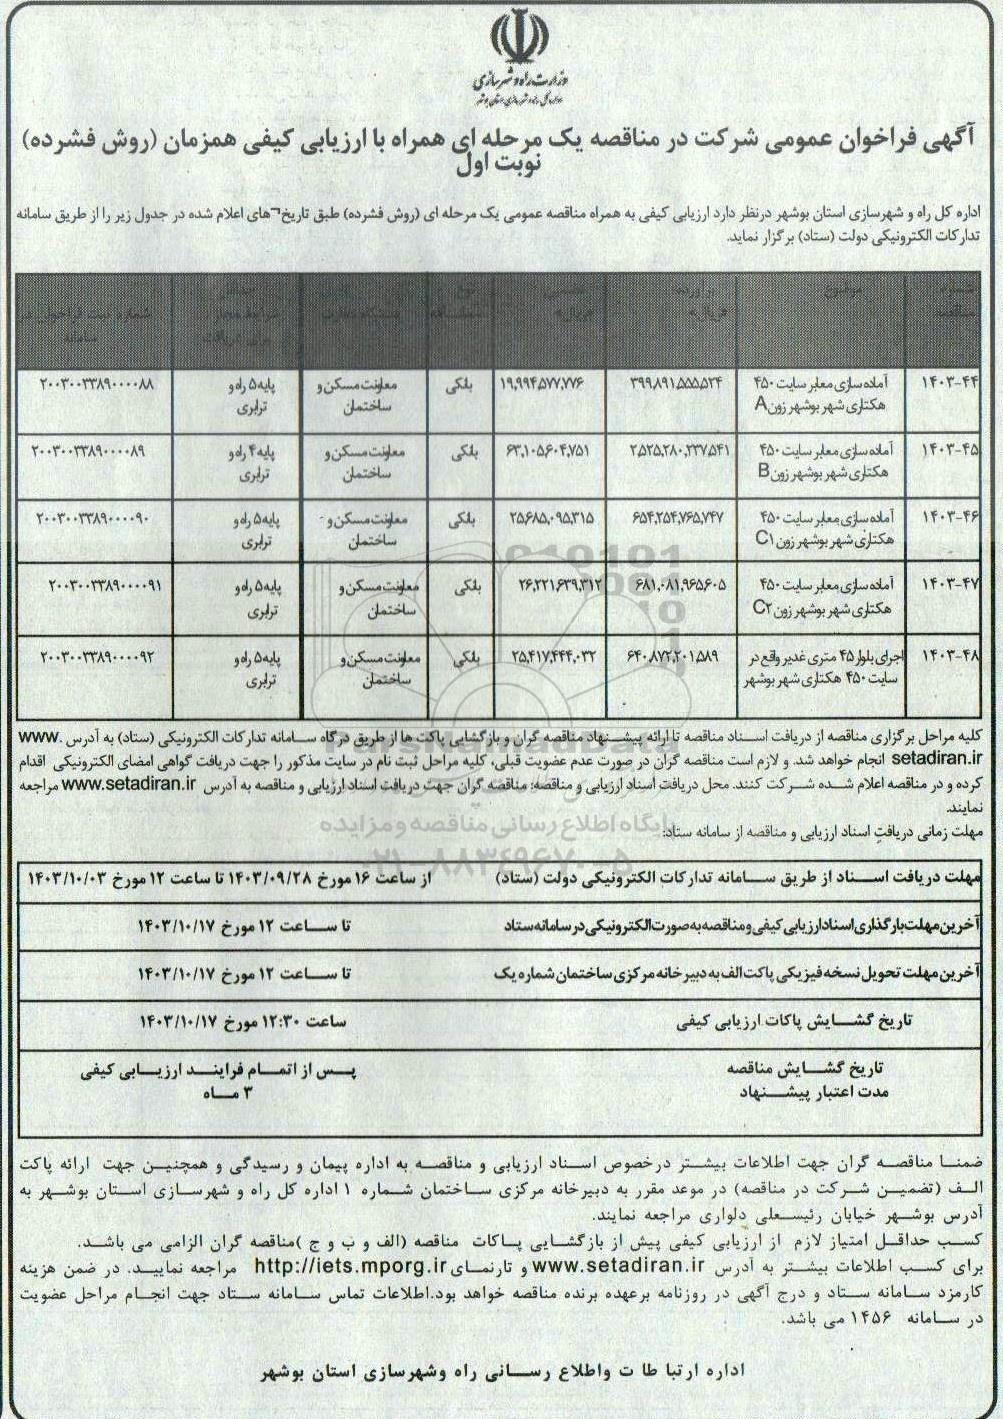 وزارت راه و شهرسازی
اداره کل راه و شهرسازی استان بوشهر
آگهی فراخوان عمومی شرکت در مناقصه یک مرحله ای همراه با ارزیابی کیفی همزمان (روش فشرده)
نوبت اول
اداره کل راه و شهرسازی استان بوشهر درنظر دارد ارزیابی کیفی به همراه مناقصه عمومی یک مرحله ای (روش فشرده) طبق تاریخ¬های اعلام شده در جدول زیر را از طریق سامانه
تدارکات الکترونیکی دولت (ستاد) برگزار نماید.
شماره مناقصه موضوع برآورد «ریال» تضمین «ریال» نوع
شماره ثبت فراخوان در سامانه
۱۴۰۳-۴۴ آماده سازی معابر سایت ۴۵۰ ۳۹۹,۸۹۱,۵۵۵,۵۲۴ ۱۹,۹۹۴,۵۷۷,۷۷۶ بانکی معاونت مسکن و پایه ۵ راه و ۲۰۰۳۰۰۳۳۸۹۰۰۰۰۸۸
هکتاری شهر بوشهر زون A ساختمان ترابری
۱۴۰۳-۴۵ آماده سازی معابر سایت ۴۵۰ ۲,۵۲۵,۲۸۰,۲۳۷,۵۴۱ ۶۳,۱۰۵,۶۰۴,۷۵۱ بانکی معاونت مسکن و پایه ۴ راه و ۲۰۰۳۰۰۳۳۸۹۰۰۰۰۸۹
هکتاری شهر بوشهر زون B ساختمان ترابری
۱۴۰۳-۴۶ آماده سازی معابر سایت ۴۵۰ ۶۵۴,۲۵۴,۷۶۵,۷۴۷ ۲۵,۶۸۵,۰۹۵,۳۱۵ بانکی معاونت مسکن و پایه ۵ راه و ۲۰۰۳۰۰۳۳۸۹۰۰۰۰۹۰
هکتاری شهر بوشهر زون C۱ ساختمان ترابری
۱۴۰۳-۴۷ آماده سازی معابر سایت ۴۵۰ ۶۸۱,۰۸۱,۹۶۵,۶۰۵ ۲۶,۲۲۱,۶۳۹,۳۱۲ بانکی معاونت مسکن و پایه ۵ راه و ۲۰۰۳۰۰۳۳۸۹۰۰۰۰۹۱
هکتاری شهر بوشهر زون C۲ ساختمان ترابری
۱۴۰۳-۴۸ اجرای بلوار ۴۵ متری غدیر واقع در ۶۴۰,۸۷۲,۲۰۱,۵۸۹ ۲۵,۴۱۷,۴۴۴,۰۳۲ بانکی معاونت مسکن و پایه ۵ راه و ۲۰۰۳۰۰۳۳۸۹۰۰۰۰۹۲
سایت ۴۵۰ هکتاری شهر بوشهر ساختمان ترابری
کلیه مراحل برگزاری مناقصه از دریافت اسناد مناقصه تا ارائه پیشنهاد مناقصه گران و بازگشایی پاکت ها از طریق درگاه سامانه تدارکات الکترونیکی (ستاد) به آدرس www.
setadiran.ir انجام خواهد شد. و لازم است مناقصه گران در صورت عدم عضویت قبلی، کلیه مراحل ثبت نام در سایت مذکور را جهت دریافت گواهی امضای الکترونیکی اقدام
کرده و در مناقصه اعلام شده شرکت کنند. محل دریافت اسناد ارزیابی و مناقصه: مناقصه گران جهت دریافت اسناد ارزیابی و مناقصه به آدرس www.setadiran.ir مراجعه
نمایند.
پایگاه اطلاع رسانی مناقصه و مزایده
مهلت زمانی دریافت اسناد ارزیابی و مناقصه از سامانه ستاد:
۰۲۱-۸۸۳۴۹۶۷۰-۵
مهلت دریافت اسناد از طریق سامانه تدارکات الکترونیکی دولت (ستاد) از ساعت ۱۶ مورخ ۱۴۰۳/۰۹/۲۸ تا ساعت ۱۲ مورخ ۱۴۰۳/۱۰/۰۳
آخرین مهلت بارگذاری اسناد ارزیابی کیفی و مناقصه به صورت الکترونیکی در سامانه ستاد تا ساعت ۱۲ مورخ ۱۴۰۳/۱۰/۱۷
آخرین مهلت تحویل نسخه فیزیکی پاکت الف به دبیرخانه مرکزی ساختمان شماره یک تا ساعت ۱۲ مورخ ۱۴۰۳/۱۰/۱۷
تاریخ گشایش پاکات ارزیابی کیفی ساعت ۱۲:۳۰ مورخ ۱۴۰۳/۱۰/۱۷
تاریخ گشایش مناقصه پس از اتمام فرایند ارزیابی کیفی
مدت اعتبار پیشنهاد ۳ ماه
ضمنا مناقصه گران جهت اطلاعات بیشتر درخصوص اسناد ارزیابی و مناقصه به اداره پیمان و رسیدگی و همچنین جهت ارائه پاکت
الف (تضمین شرکت در مناقصه) در موعد مقرر به دبیرخانه مرکزی ساختمان شماره ۱ اداره کل راه و شهرسازی استان بوشهر به
آدرس بوشهر خیابان رئیسعلی دلواری مراجعه نمایند.
کسب حداقل امتیاز لازم از ارزیابی کیفی پیش از بازگشایی پاکات مناقصه (الف و ب و ج )مناقصه گران الزامی می باشد.
برای کسب اطلاعات بیشتر به آدرس www.setadiran.ir و تارنمای http://iets.mporg.ir مراجعه نمایید. در ضمن هزینه
کارمزد سامانه ستاد و درج آگهی در روزنامه برعهده برنده مناقصه خواهد بود.اطلاعات تماس سامانه ستاد جهت انجام مراحل عضویت
در سامانه ۱۴۵۶ می باشد.
اداره ارتبا طا ت واطلاع رسانی راه وشهرسازی استان بوشهر